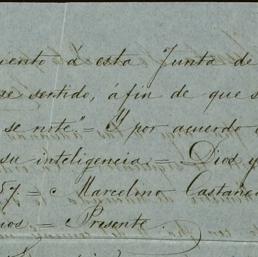 miento á esta Junta de
se sentido, áfin de que s
se note"= Y por acuerdo
su inteligencia = Dios y
57 = Marcelino Castañe
ios = Presente.